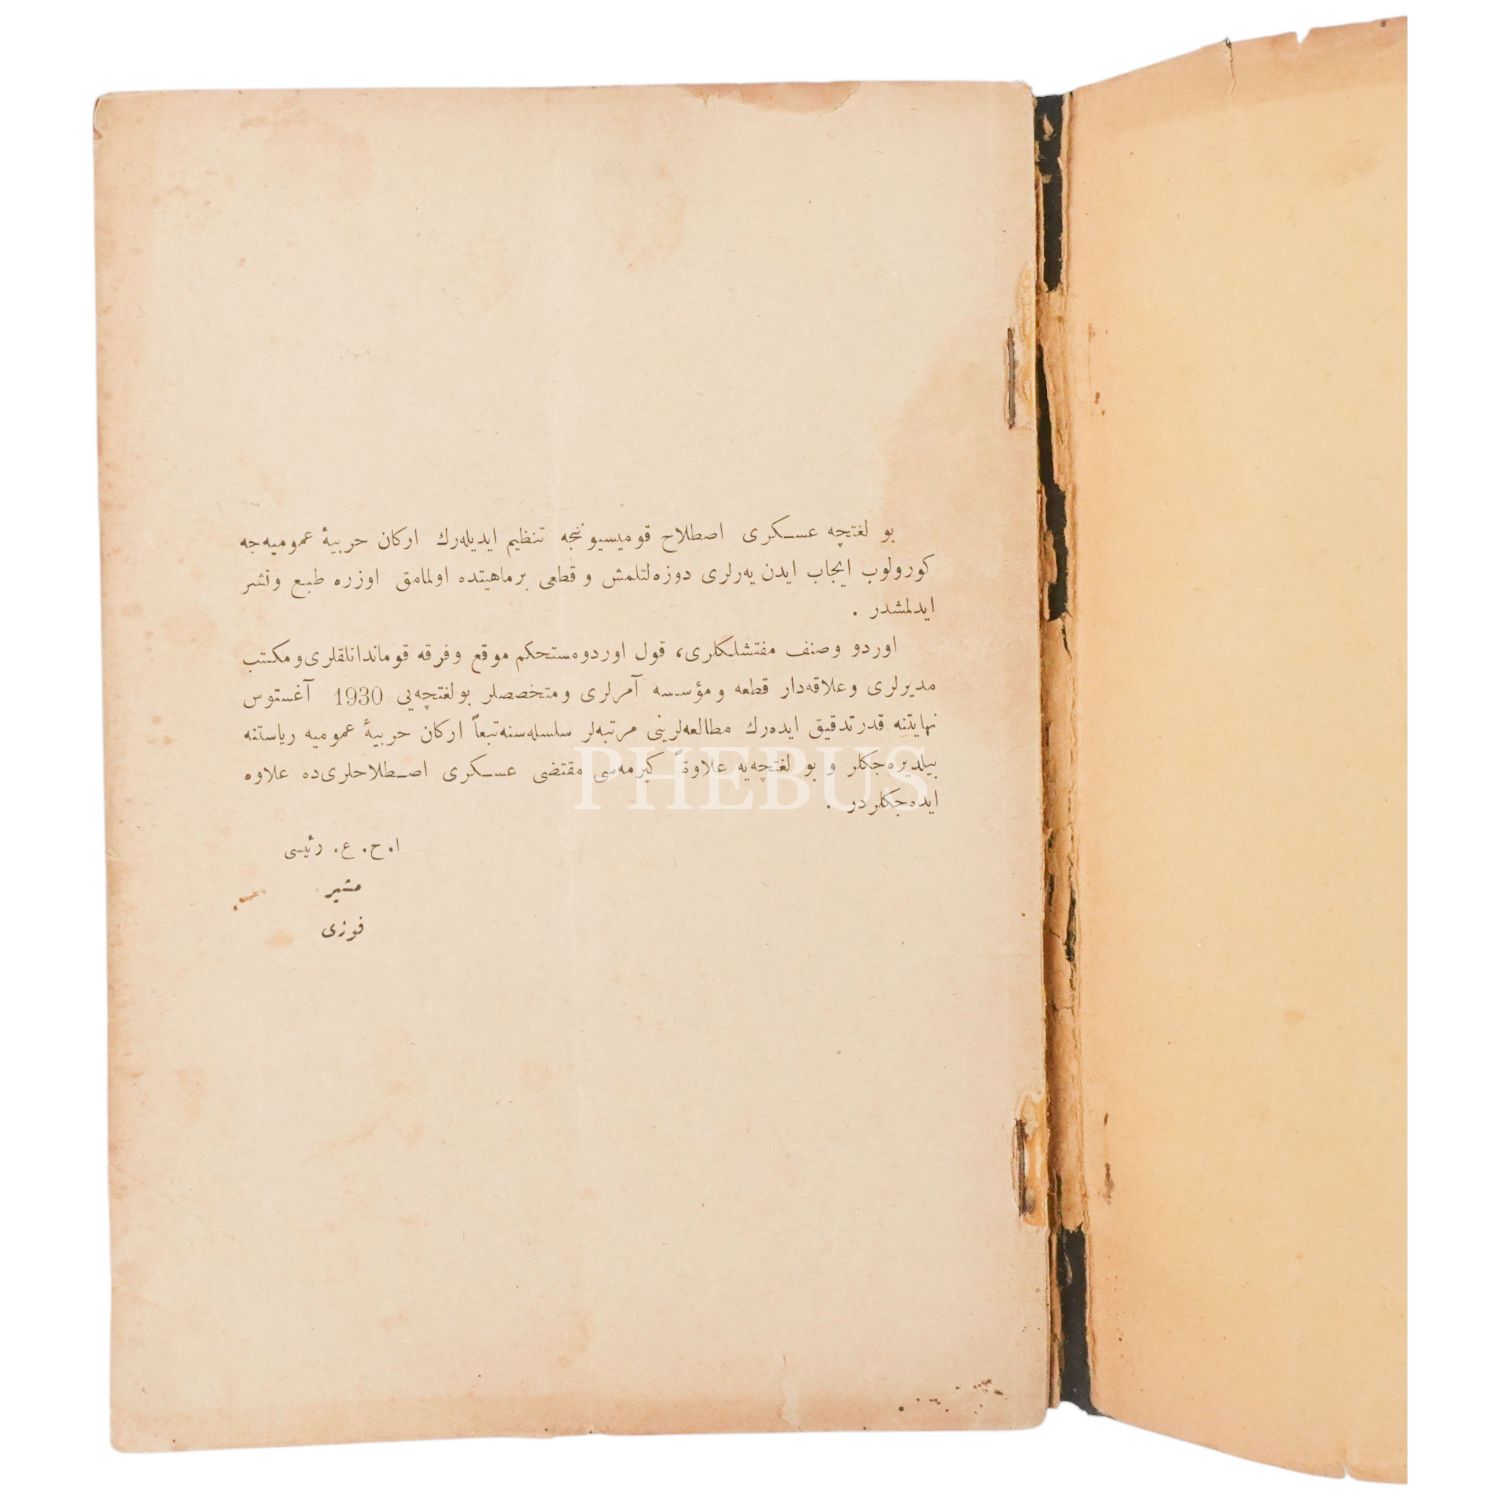 بو لغتچه عسكری اصطلاح قوميسيونجه تنظيم ايديله‌رك اركان حربيهٔ عموميه‌جه
كورولوب ايجاب ايدن يه‌رلری دوزه‌لتلمش و قطعی برماهيتده اولمامق اوزره طبع ونشر
ايدلمشدر .
اوردو وصنف مفتشلكلری، قول اوردومستحكم موقع وفرقه قوماندانلقلری‌ومكتب
مديرلری وعلاقه‌دار قطعه ومؤسسه آمرلری ومتخصصلر بولغتچه‌يی 1930 آغستوس
نهايتنه قدرتدقيق ايده‌رك مطالعه‌لرينی مرتبه‌لر سلسله‌سنه‌تبعاً اركان حربيهٔ عموميه رياستنه
بيلديره‌جكلر و بو لغتچه‌يه علاوةً كيرمه‌سی مقتضی عسكری اصطلاحلری‌ده علاوه
ايده‌جكلردر .
ا. ح. ع. رئيسی
مشير
فوزی
PHEBUS